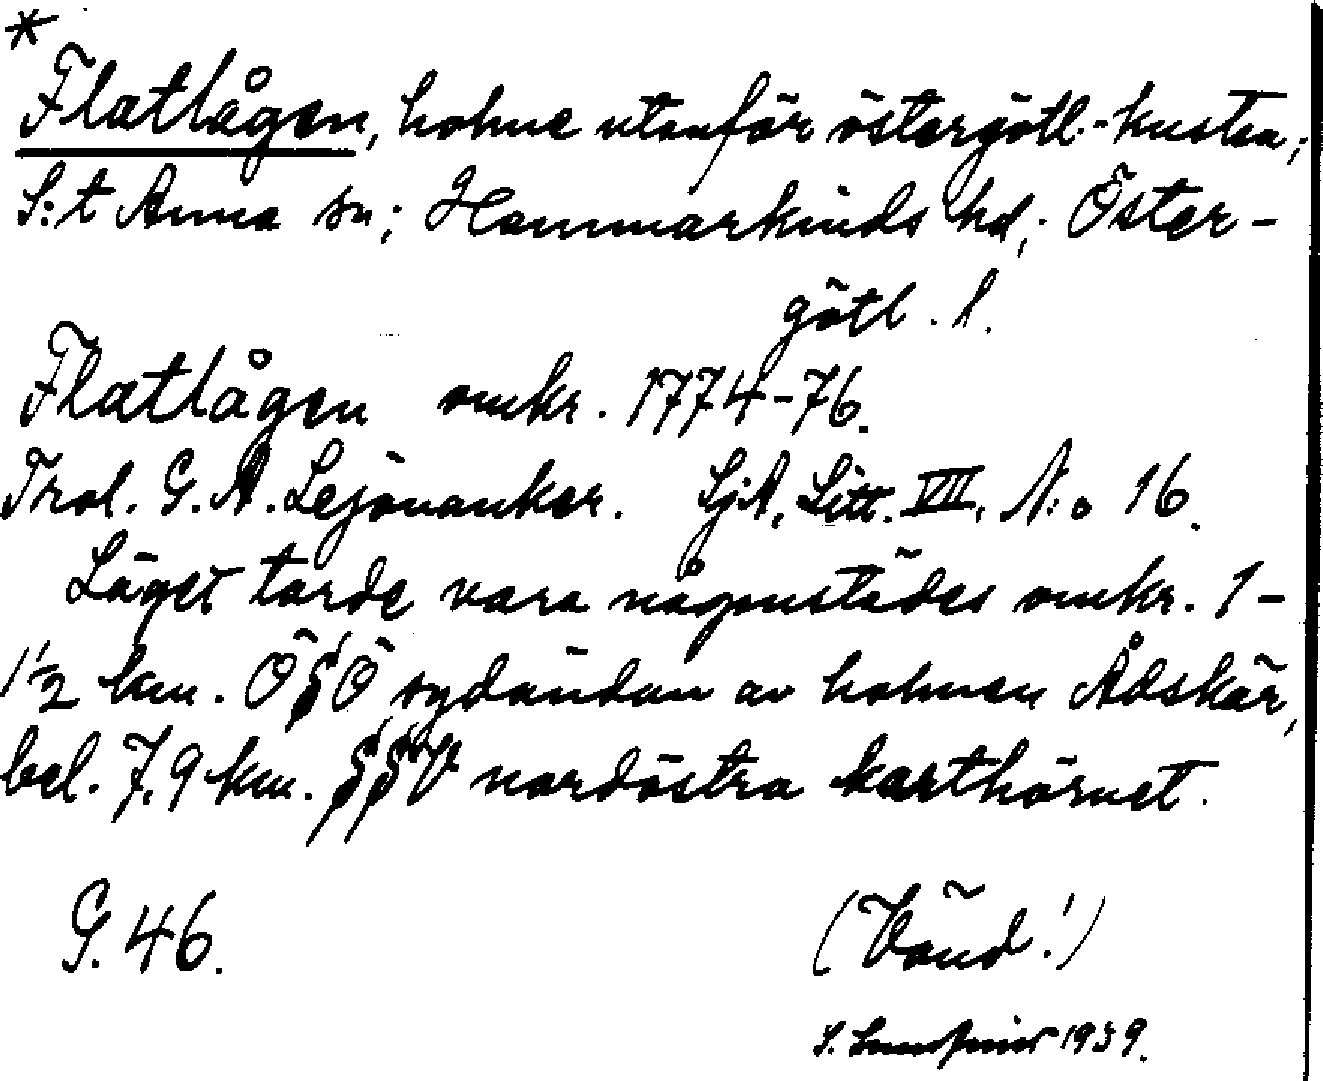 *
Flatlågen, holme utanför östergötl.-kusten,
S:t Anna sn; Hammarkinds hd; Öster-
götl. l.
Flatlågen omkr. 1774-76.
Trol. G. A. Lejonanker. SjA, Litt. VII, N:o 16.
Läget torde vara någonstädes omkr. 1-
1½ km. ÖSÖ sydändan av holmen Ådskär,
bel. 7,9 km. SSV nordöstra karthörnet.
G. 46.
(Vänd!)
S. 1939.